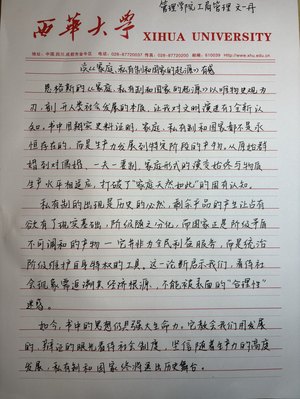 管理学院工商管理 文一丹
西华大学
XIHUA UNIVERSITY
地址：中国.四川.成都市金牛区 电话：028-87720037 传真：028-87720200 邮编：610039 Http://www.xhu.edu.cn
读《家庭、私有制和国家的起源》有感
恩格斯的《家庭、私有制和国家的起源》以唯物史观为
刃，剖开人类社会发展的本质，让我对文明演进有了全新认
知。书中用翔实史料证明，家庭、私有制和国家都不是永
恒存在的，而是生产力发展到特定阶段的产物。从原始群
婚到对偶婚、一夫一妻制，家庭形式的演变始终与物质
生产水平相适应，打破了“家庭天然如此”的固有认知。
私有制的出现是历史的必然，剩余产品的产生让占有
欲有了现实基础，阶级随之分化，而国家正是阶级矛盾
不可调和的产物—它并非为全民利益服务，而是统治
阶级维护自身特权的工具。这一论断启示我们，看待社
会现象需追溯其经济根源，不能被表面的“合理性”
迷惑。
如今，书中的思想仍具强大生命力。它教会我们用发展
的、辩证的眼光看待社会制度，坚信随着生产力的高度
发展，私有制和国家终将退出历史舞台。